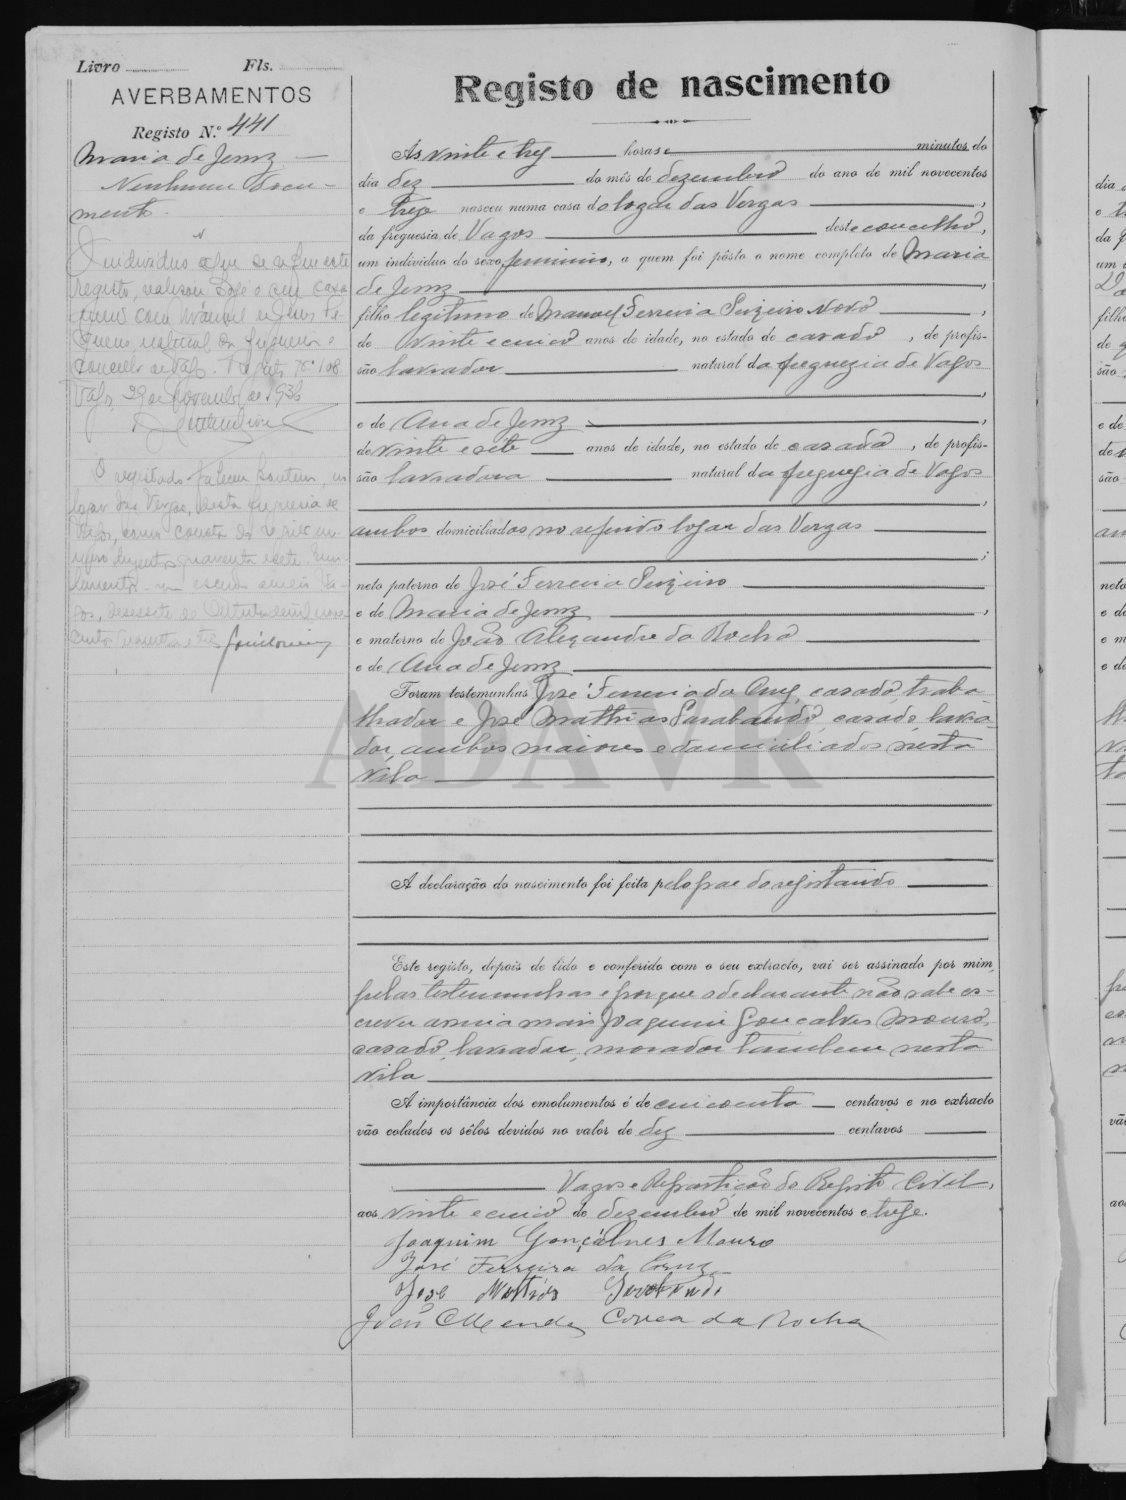 Livro Fls.
AVERBAMENTOS
Registo N.º 441
Maria de Jesus
Nenhum docu-
mento.
O individuo a que se refere este
registo, realisou hoje o seu casa
mento com Manuel
natural da freguesia e
concelho de Vagos. Registo nº 108
Vagos, 29 de Novembro de 1936
O registado faleceu hontem no
lugar das Vergas, desta freguesia de
Vagos, como consta do registo nu-
mero duzentos quarenta e sete.
Va-
gos, desessete de mil nove
centos quarenta e tres
Registo de nascimento
Ás vinte e tres horas e minutos do
dia dez do mês de dezembro do ano de mil novecentos
e treze nasceu numa casa do logar das Vergas,
da freguesia de Vagos deste concelho,
um indivíduo do sexo feminino, a quem foi pôsto o nome completo de Maria
de Jesus,
filho legitimo de Manuel Ferreira Novo,
de vinte e cinco anos de idade, no estado de casado, de profis-
são lavrador natural da freguezia de Vagos
,
e de Ana de Jesus,
de vinte e sete anos de idade, no estado de casada, de profis-
são lavradora natural da freguezia de Vagos
,
ambos domiciliados no referido logar das Vergas
;
neto paterno de José Ferreira
e de Maria de Jesus,
e materno de João Alexandre da Rocha
e de Ana de Jesus
Foram testemunhas José Ferreira da Cruz, casado, traba-
lhador e José Mathias Sarabando, casado, lavra-
dor, ambos maiores e domiciliados nesta
vila
A declaração do nascimento foi feita pelo pae do registando
Este registo, depois de lido e conferido com o seu extracto, vai ser assinado por mim,
pelas testemunhas e porque o declarante não sabe es-
crever assina mais Joaquim Gonçalves Mouro,
casado, lavrador, morador tambem nesta
vila
A importância dos emolumentos é de cincoenta centavos e no extracto
vão colados os sêlos devidos no valor de dez centavos
Vagos e Repartição do Registo Civil,
aos vinte e cinco de dezembro de mil novecentos e treze.
Joaquim Gonçalves Mouro
José Ferreira da Cruz
José Mathias Sarabando
João Mendes Correa da Rocha
ADAVR